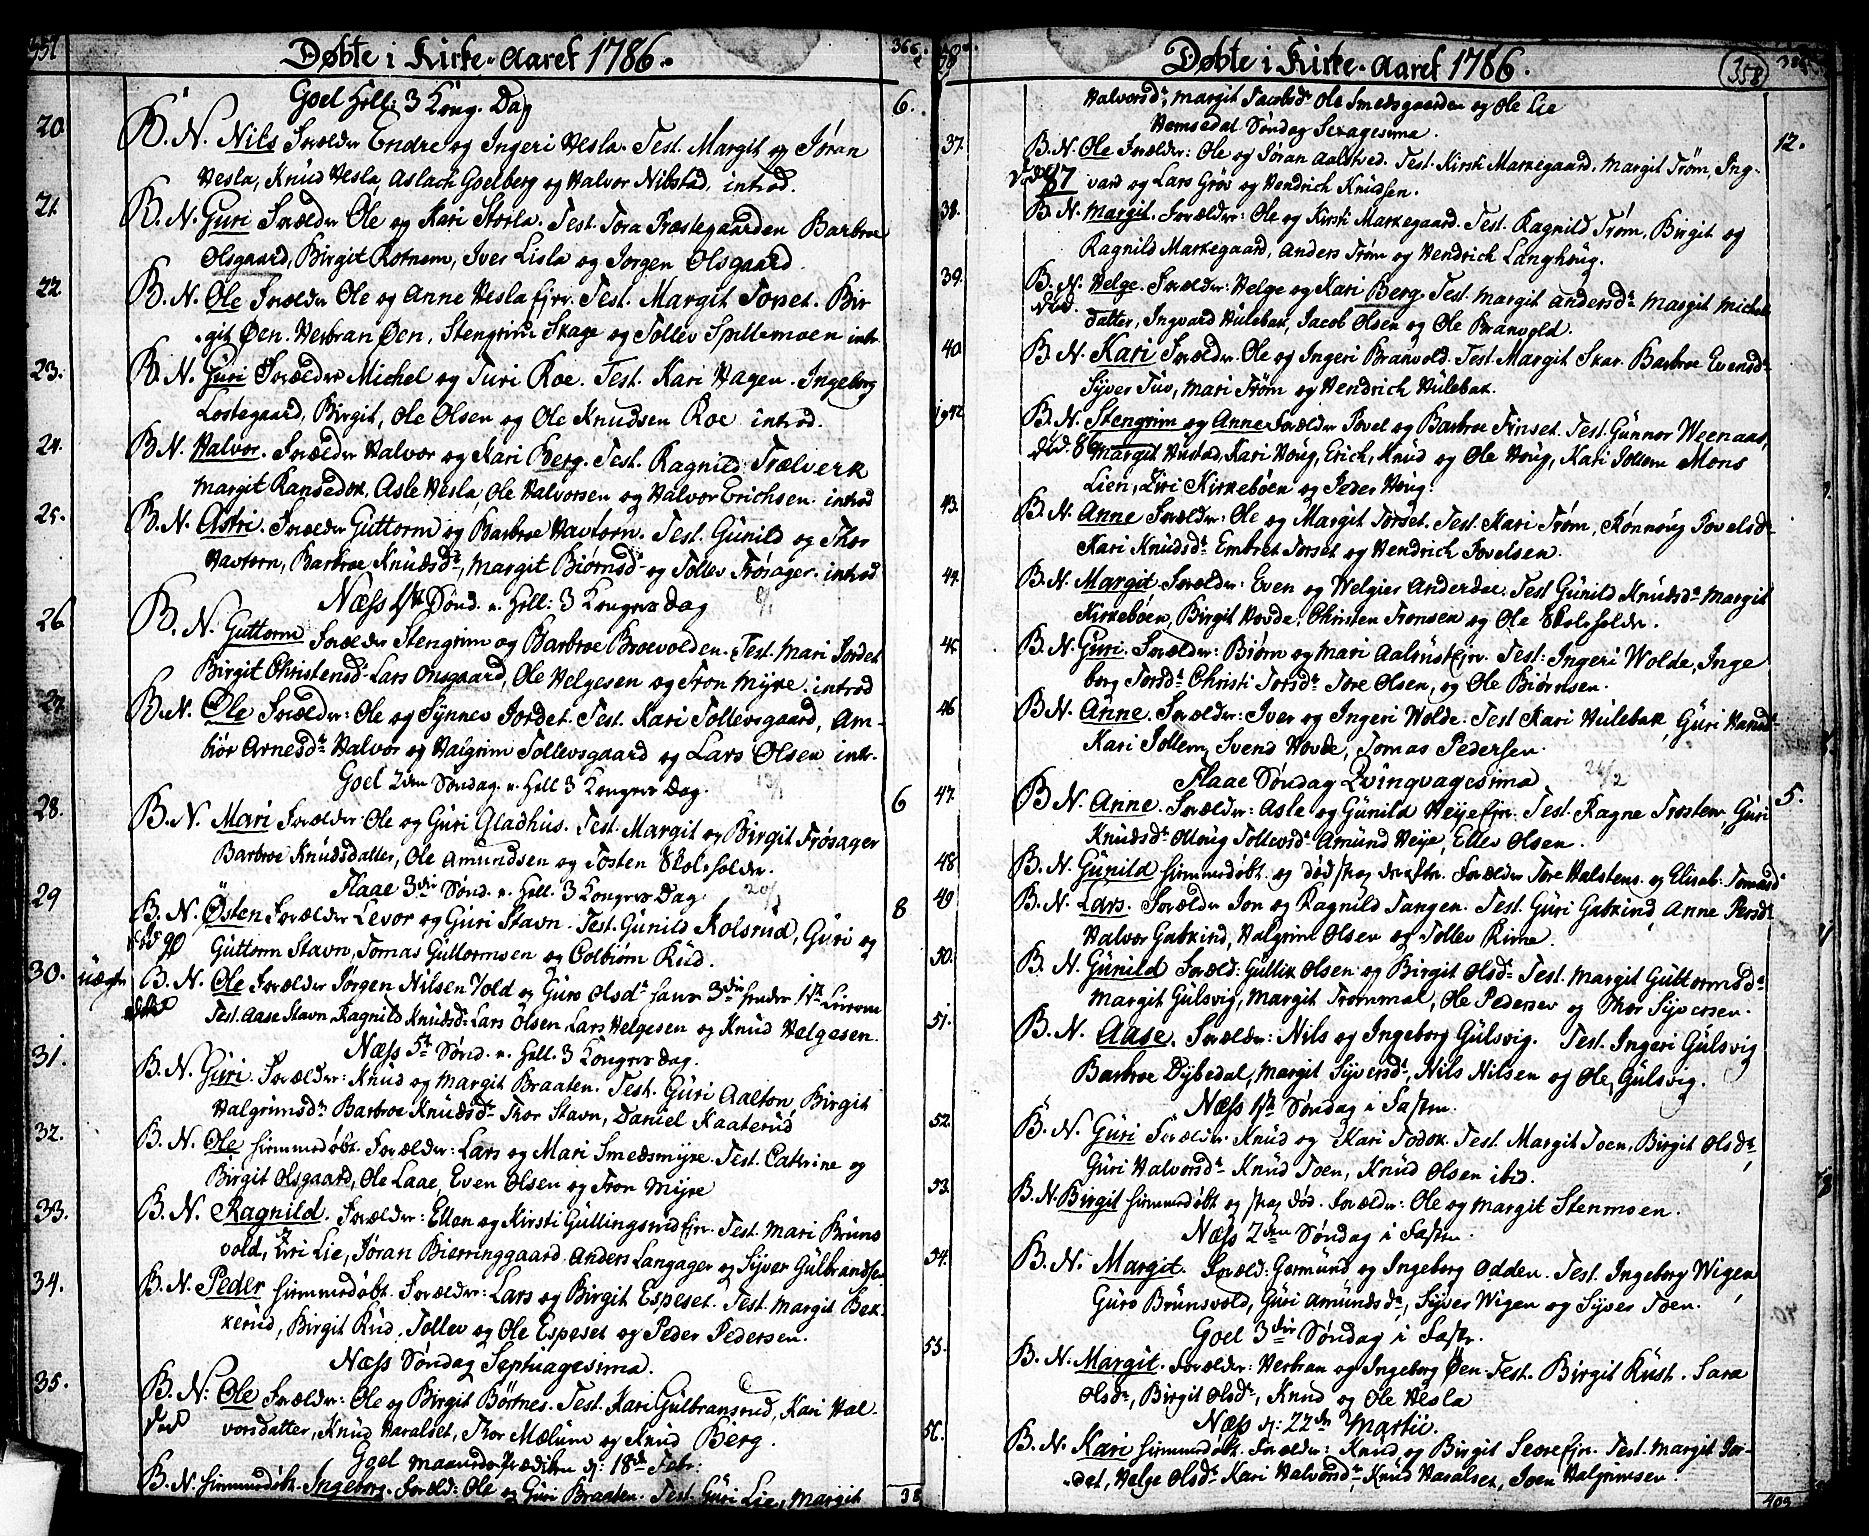 357 Døbte i Kirke-Aaret 1786. 366.
Goel Hell: 3 Kong. Dag 6.
20. B. N. Nils Forældre Endre og Ingeri Vesla. Test. Margit og Jøran
Vesla, Knud Vesla, Aslach Goelberg og Halvor Nibstad, introd.
21. B. N. Guri Forældre Ole og Kari Storla. Test. Tora Præstegaarden Barbroe
Olsgaard, Birgit Rotnem, Iver Lisla og Jørgen Olsgaard
22 B. N. Ole Forældre Ole og Anne Vesla Ejer. Test. Margit Torset. Bir
git Øen. Verbran Øen, Stengrim Skage og Tollev Spillemoen intr.
23. B. N. Guri Forældre Michel og Turi Roe. Test. Kari Hagen. Ingeborg
Lostegaard, Birgit, Ole Olsen og Ole Knudsen Roe introd.
24. B N. Halvor. Forældre Halvor og Kari Berg. Test. Ragnild Trælverk
Margit Ransedok, Asle Vesla, Ole Halvorsen og Halvor Erichsen. introd
25. B. N. Astri. Forældre Guttorm og Barbroe Havtorn. Test. Gunild og Thor
Havtorn, Barbroe Knudsdr, Margit Biørnsdr og Tollev Frøsager. introd
Næss 1ste Sønd. e. Hell: 3 Kongers Dag 8/1
26 B. N. Guttorm Forældre Stengrim og Barbroe Broevolden. Test. Mari Jordet
Birgit Christensdr Lars Onsgaard, Ole Helgesen og Tron Myre. introd
27. B. N. Ole Forældre: Ole og Synnev Jordet. Test. Kari Tollevsgaard, Am-
biør Arnesdr Halvor og Halgrim Tollevsgaard og Lars Olsen intr.
Goel 2den Søndag e. Hell 3 Kongers Dag.
28. B. N. Mari Forældre Ole og Guri Gladhus. Test. Margit og Birgit Frøsager 6
Barbroe Knudsdatter, Ole Amundsen og Tosten Skoleholder.
Flaae 3die Sønd. e. Hell. 3 Kongers Dag
29 B. N. Østen Forældre Levor og Guri Stavn. Test. Gunild Kolsrud, Guri og 8
Guttorm Stavn, Tomas Guttormsen og Colbiørn Rud.
30. uægte B. N. Ole Forældre Jørgen Nilsen Vold og Guro Olsdr
Test. Aase Stavn, Ragnild Knudsdr Lars Olsen, Lars Helgesen og Knud Helgesen.
Næss 5te Sønd. e. Hell. 3 Kongers Dag.
31. B. N. Guri. Forældre: Knud og Margit Braaten. Test. Guri Aalton, Birgit
Halgrimsdr Barbroe Knudsdr Thor Stavn, Daniel Kaaterud
32. B. N. Ole hiemmedøbt. Forældre: Lars og Mari Smedsmyre. Test. Cathrine og
Birgit Olsgaard, Ole Laae, Even Olsen og Tron Myre
33. B. N. Ragnild. Forældre: Ellen og Kirsti Gullingsrud Ejer. Test. Mari Bruns
vold, Ziri Lie, Jøran Bierringgaard. Anders Langager og Syver Gulbrandsen
34. B. N. Peder hiemmedøbt. Forældre: Lars og Birgit Espeset. Test. Margit Bek
kerud, Birgit Rud, Tollev og Ole Espeset og Peder Pedersen.
Næss Søndag Septuagesima.
35. B. N: Ole Forældre: Ole og Birgit Børtnes. Test. Kari Gulbransrud, Kari Hal-
død vorsdatter, Knud Haralset, Thor Mælum og Knud Berg.
Goel Maaneds Prædiken d: 18de Febr:
B. N. hiemmedøbt. Ingeborg. Foræld: Ole og Guri Braaten. Test. Guri Lie, Margit 38
Døbte i Kirke-Aaret 1786. 358
Halvorsdr, Margit Jacobsdr Ole Smedsgaarden og Ole Lie
Hemsedal Søndag Sexagesima.
37. B. N. Ole Forælder: Ole og Jøran Aalsted. Test. Kirsti Markegaard, Margit Trøm, Ing- 12.
død 87 vard og Lars Grøv og Hendrich Knudsen.
38. B. N. Margit. Forælder: Ole og Kirsti Markegaard. Test. Ragnild Trøm, Birgit og
Ragnild Markegaard, Anders Trøm og Hendrich Langhoug.
39. B. N. Helge. Forælder: Helge og Kari Berg. Test. Margit Andersdr Margit Michels
død. datter, Ingvard Hulebak, Jacob Olsen og Ole Branvold.
40. B N. Kari Forælder Ole og Ingeri Branvold. Test. Margit Skar. Barbroe Evensdr
Syver Tuv, Mari Trøm og Hendrich Hulebak.
B. N. Stengrim og Anne Forælder Povel og Barbroe Finset. Test. Gunnor Weenaas,
død. Margit Hustad, Kari Houg, Erich, Knud og Ole Houg, Kari Tollem Mons
Lien, Ziri Kirkebøen og Peder Houg.
43. B. N. Anne Forælder: Ole og Margit Torset. Test. Kari Trøm, Rønnoug Povelsdr
Kari Knudsdr Embret Torset og Hendrich Povelsen.
44. B. N. Margit Forælder: Even og Welgier Anderdae. Test Gunild Knudsdr Margit
Kirkebøen, Birgit Hovde, Christen Tronsen og Ole Skoleholder.
45. B. N. Guri. Forælder: Biørn og Mari Aalrust Ejer. Test: Ingeri Wolde, Inge
borg Torsdr Christi Torsdr Tore Olsen, og Ole Biørnsen.
46 B N. Anne. Forælder: Iver og Ingeri Wolde. Test Kari Hulebak, Guri Hansdr
Kari Tollem, Svend Hovde, Tomas Pedersen.
Flaae Søndag Qvinqvagesima 26/2
47. B N. Anne. Forælder: Asle og Gunild Veye Ejer. Test. Ragne Trostem, Guri 5.
Knudsdr Olloug Tollevsdr Amund Veye, Ellev Olsen.
48 B. N. Gunild hiemmedøbt og død strax derefter. Forældre Tore Halstens. og Elisab. Tomasdr
49 B. N. Lars. Forældre Jon og Ragnild Tangen. Test. Guri Gabkind, Anne Persdr
Halvor Gabkind, Halgrim Olsen og Tollev Rime.
50. B. N. Gunild Foræld: Gullik Olsen og Birgit Olsdr Test. Margit Guttormsdr
Margit Gulsvig, Margit Trommal, Ole Pedersen og Thor Syversen.
51. B. N. Aase. Forælder: Nils og Ingeborg Gulsvig. Test. Ingeri Gulsvig
Barbroe Dybedal, Margit Syversdr, Nils Nilsen og Ole Gulsvig.
Næss 1ste Søndag i Fasten.
52. B. N. Guri Forælder Knud og Kari Todok. Test. Margit Toen, Birgit Olsdr,
Guri Halvorsdr Knud Toen, Knud Olsen ibid.
53. B. N. Birgit hiemmedøbt og strax død. Forælder: Ole og Margit Stenmoen.
Næss 2den Søndag i Fasten.
54. B. N. Margit. Foræld: Germund og Ingeborg Odden. Test. Ingeborg Wigen,
Guro Brunsvold, Guri Amundsdr, Syver Wigen og Syver Toen.
Goel 3die Søndag i Faste.
55. B. N. Margit. Forælder: Verbran og Ingeborg Øen. Test. Birgit Rust. Sara
Olsdr, Birgit Olsdr, Knud og Ole Vesla
Næss d: 22de Martii.
56. B. N. Kari hiemmedøbt. Forælder: Knud og Birgit Sevre Ejer. Test. Margit Jor-
det, Helge Olsdr Kari Halvorsdr, Knud Haralset, Joen Halgrimsen. 403